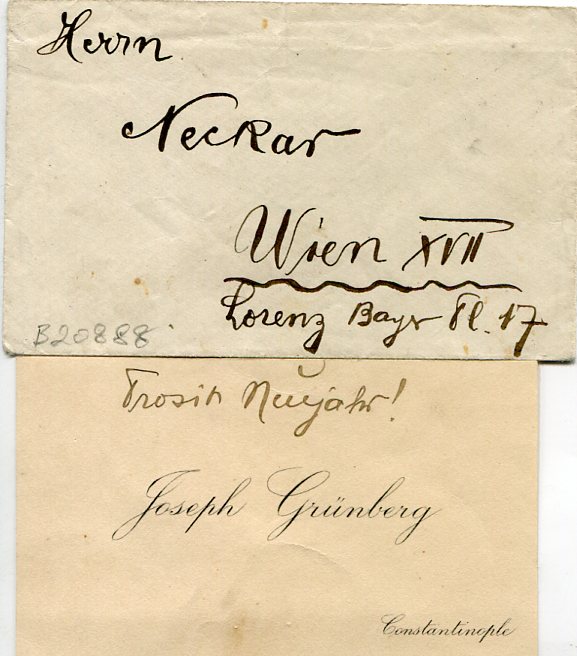 Herrn
Neckar
Wien XVII
Lorenz Bayr Pl. 17
B20888
Prosit Neujahr!
Joseph Grünberg
Constantinople